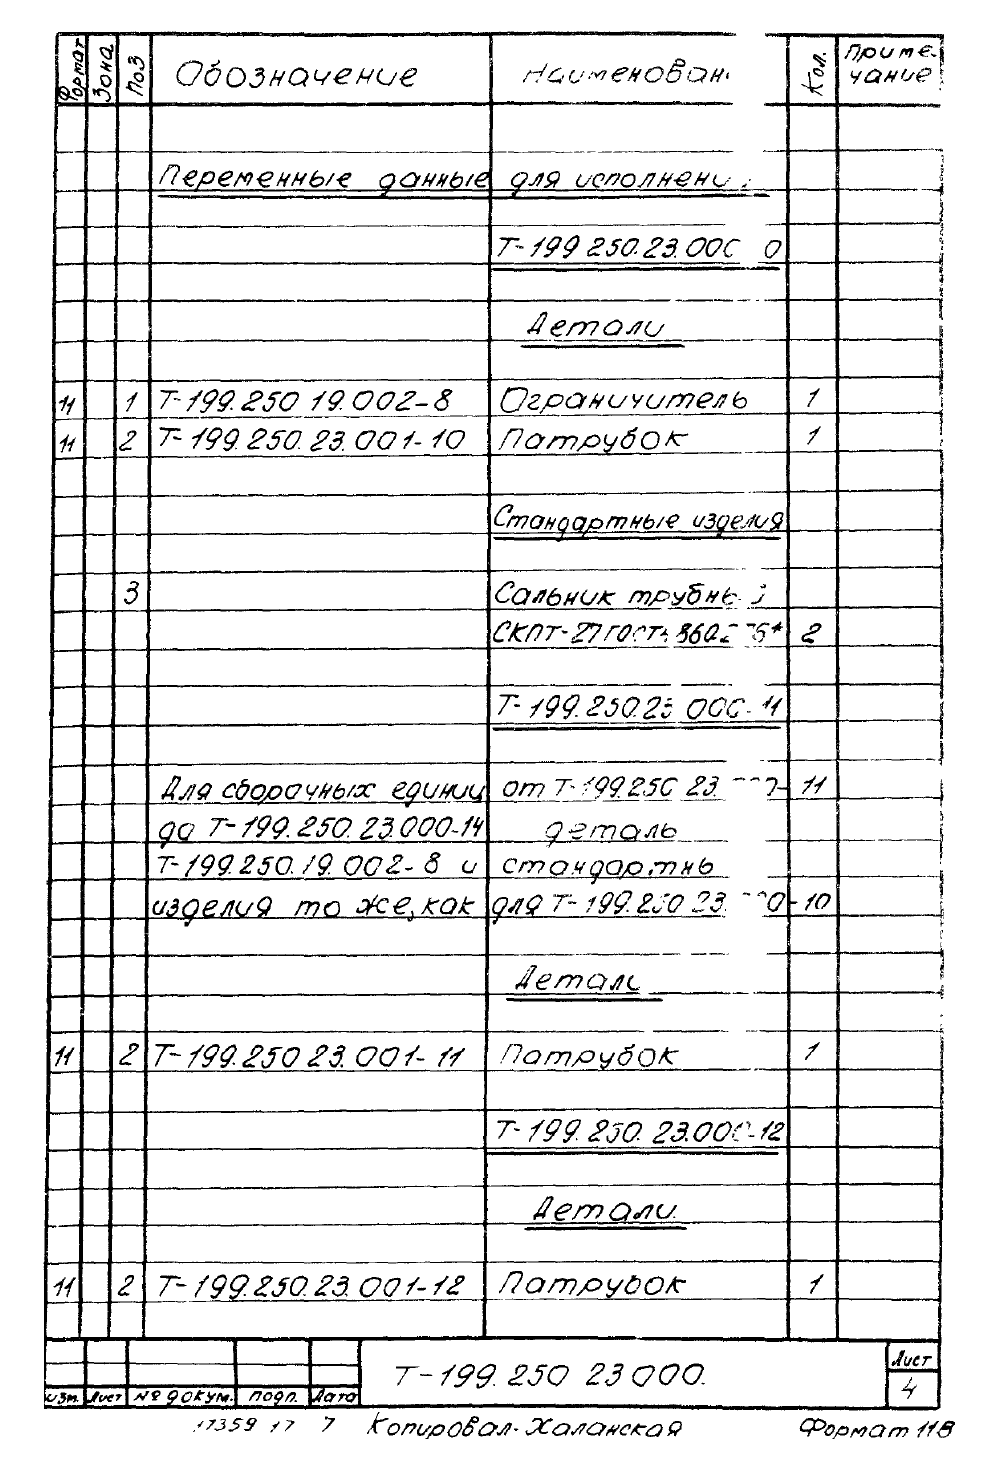 Формат Зона Поз Обозначение Наименован Кол. Приме-
чание
Переменные данные для исполнени
Т-199 250.23.000 0
Детали
11 1 Т-199.250 19.002-8 Ограничитель 1
11 2 Т-199.250.23.001-10 Патрубок 1
Стандартные изделия
3 Сальник трубный
СКПТ-27 2
Т-199.250.23 000-11
Для сборочных единиц от Т-199.250 23. -11
до Т-199.250.23.000-14 деталь
Т-199.250.19.002-8 и стандартны
изделия то же, как для Т-199.250 23. 0-10
Детали
11 2 Т-199.250 23.001-11 Патрубок 1
Т-199.250.23.000-12
Детали
11 2 Т-199.250.23.001-12 Патрубок 1
Изм. Лист № докум. подп. Дата
Т-199.250 23 000.
Лист
4
17359 17 7 Копировал-Халанская Формат 11В